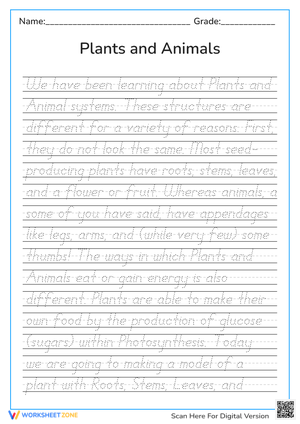 Name:________________________________ Grade:____________
Plants and Animals
We have been learning about Plants and
Animal systems. These structures are
different for a variety of reasons. First,
they do not look the same. Most seed-
producing plants have roots, stems, leaves,
and a flower or fruit. Whereas animals, a
some of you have said, have appendages
like legs, arms, and (while very few) some
thumbs! The ways in which Plants and
Animals eat or gain energy is also
different. Plants are able to make their
own food by the production of glucose
(sugars) within Photosynthesis. Today
we are going to making a model of a
plant with Roots, Stems, Leaves, and
WORKSHEETZONE
Scan Here For Digital Version